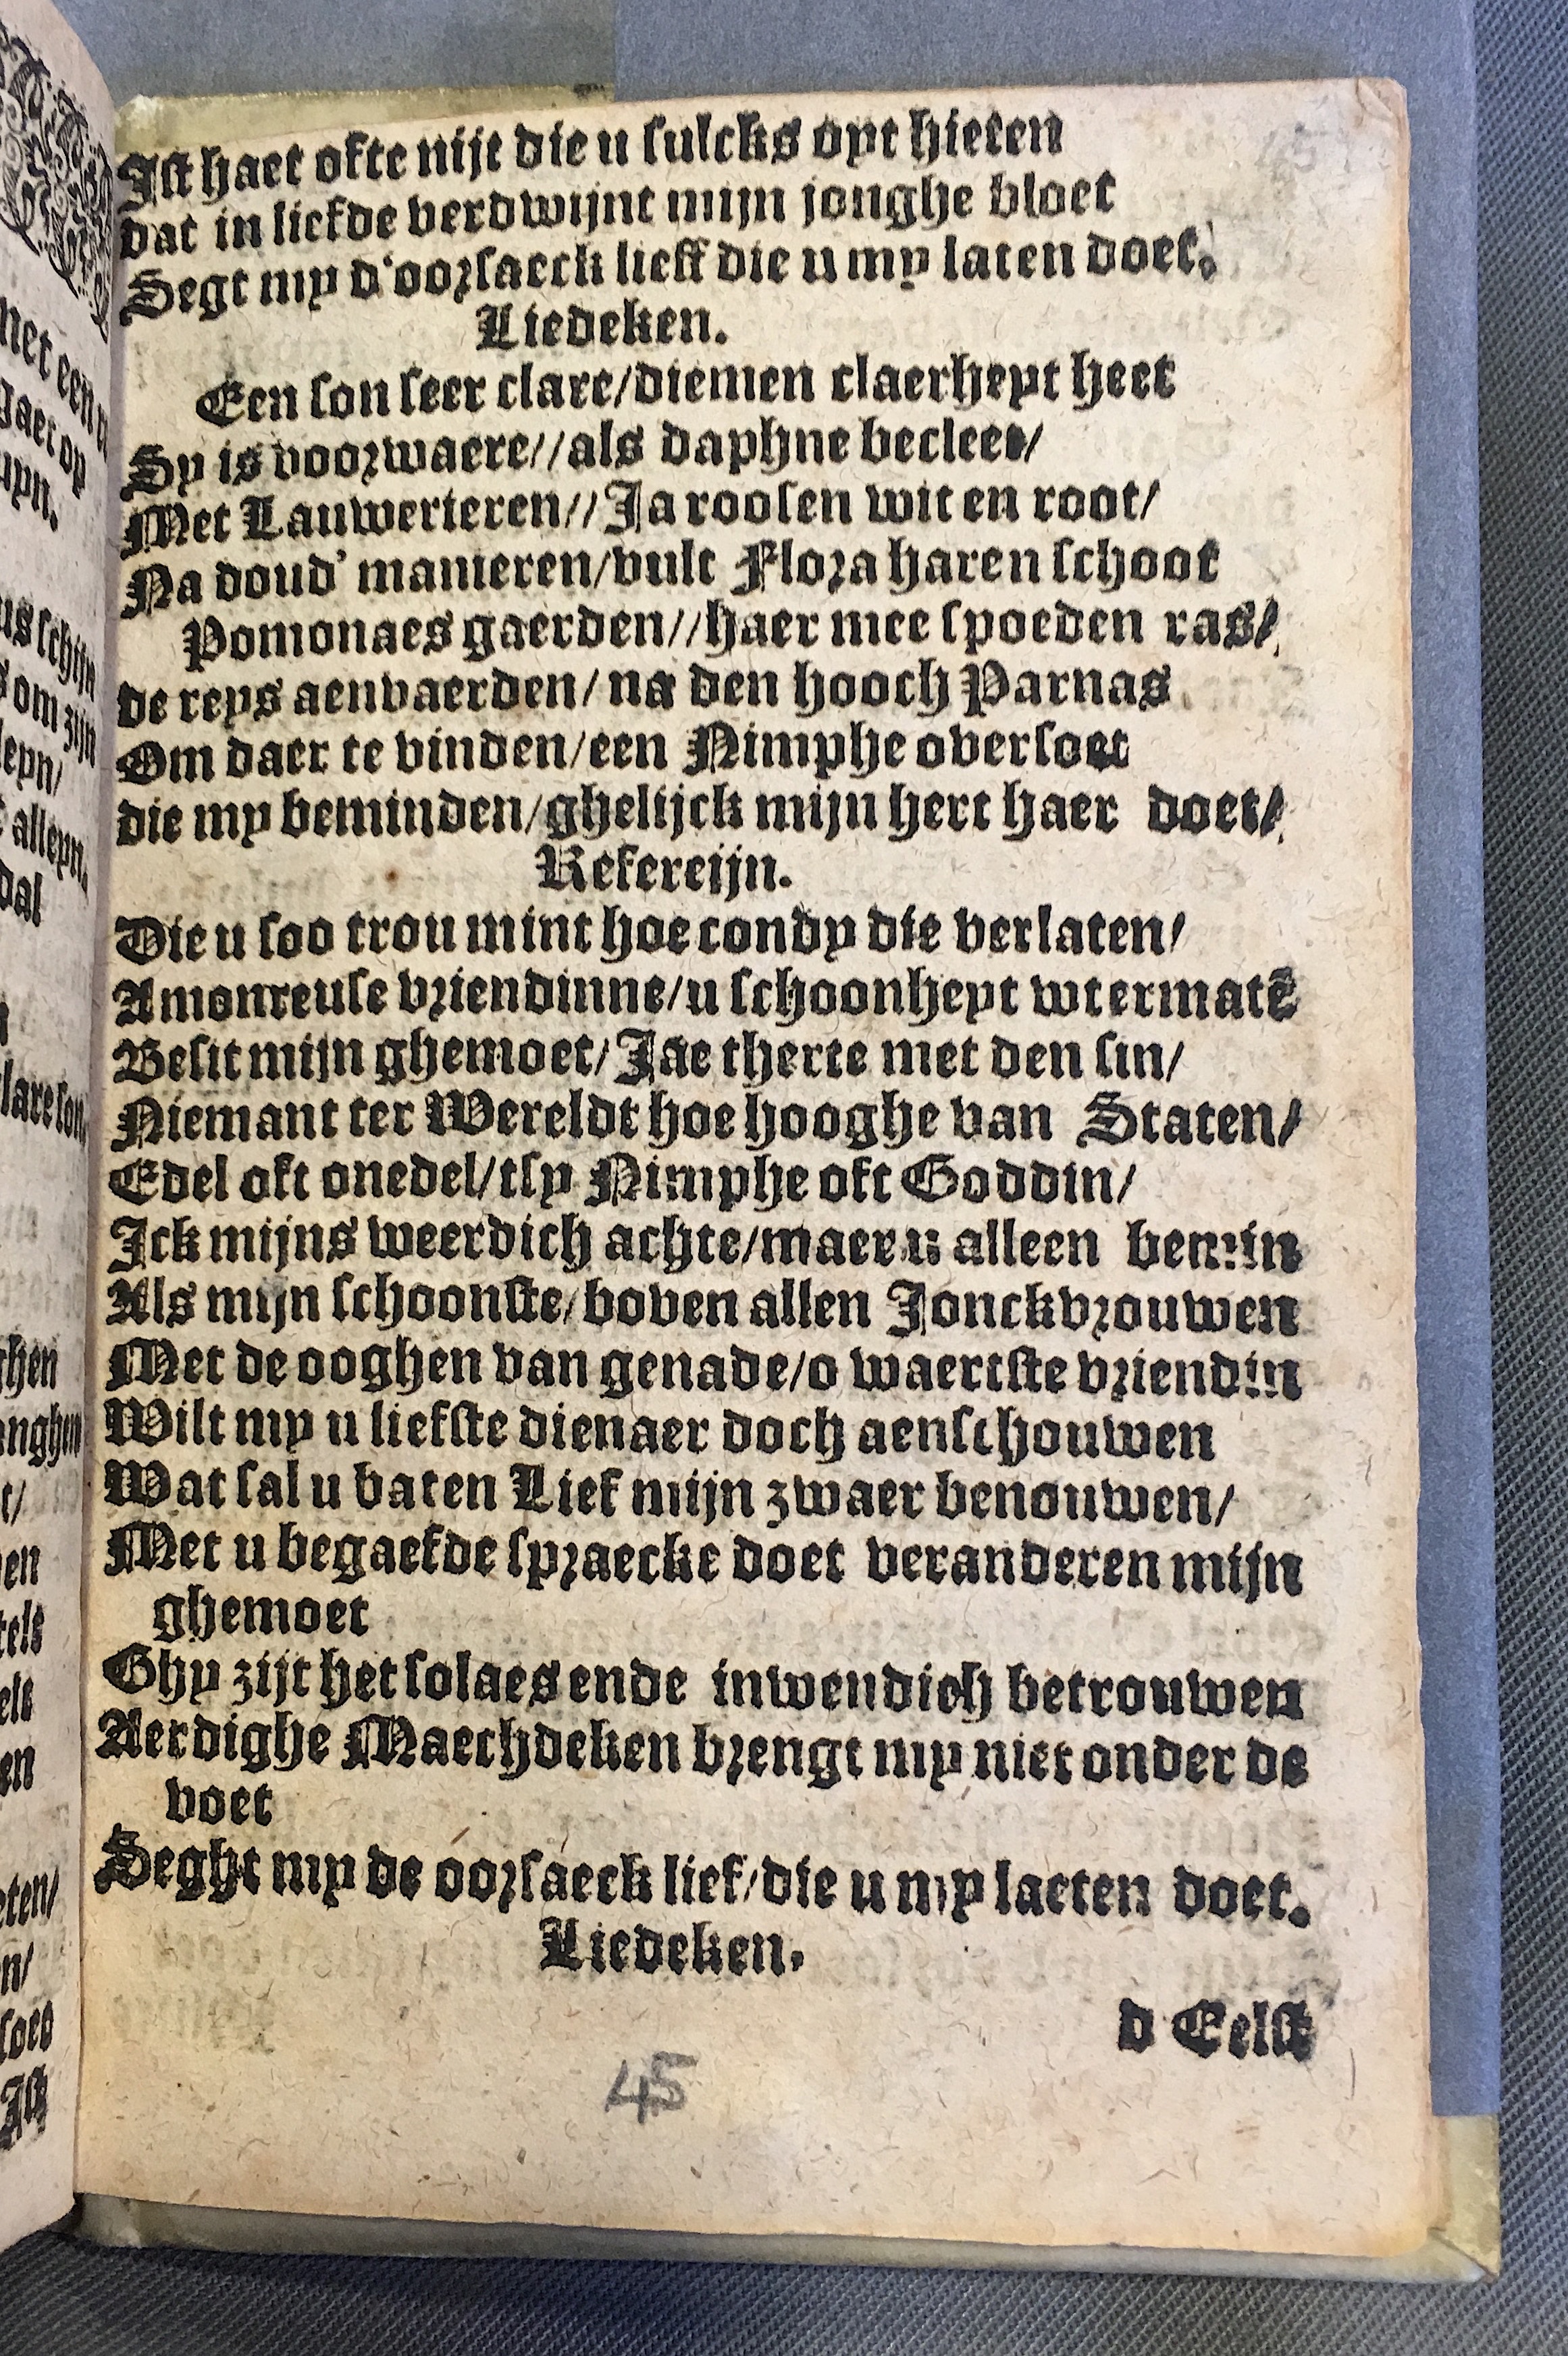 Ist haet ofte nijt die u sulcks oyt hieten
dat in liefde verdwijnt mijn jonghe bloet
Segt my d'oorsaeck lieff die u my laten doet.
Liedeken.
Een son seer clare/diemen claerheyt heet
Sy is voorwaere//als daphne becleet/
Met Lauwerieren//Ja roosen wit en root/
Na doud' manieren/vult Flora haren schoot
Pomonaes gaerden//haer mee spoeden ras/
de reys aenvaerden/na den hooch Parnas
Om daer te vinden/een Nimphe oversoet
die my beminden/ghelijck mijn hert haer doet/
Refereijn.
Die u soo trou mint hoe condy die verlaten/
Amoureuse vriendinne/u schoonheyt wtermatē
Besit mijn ghemoet/Jae therte met den sin/
Niemant ter Wereldt hoe hooghe van Staten/
Edel oft onedel/tsy Nimphe oft Goddin/
Ick mijns weerdich achte/maer u alleen bemin
Als mijn schoonste/boven allen Jonckvrouwen
Met de ooghen van genade/o waertste vriendin
Wilt my u liefste dienaer doch aenschouwen
Wat sal u baten Lief mijn zwaer benouwen/
Met u begaefde spraecke doet veranderen mijn
ghemoet
Ghy zijt het solaes ende inwendich betrouwen
Aerdighe Maechdeken brengt my niet onder de
voet
Seght my de oorsaeck lief/die u my laeten doet.
Liedeken.
d Eelst
45